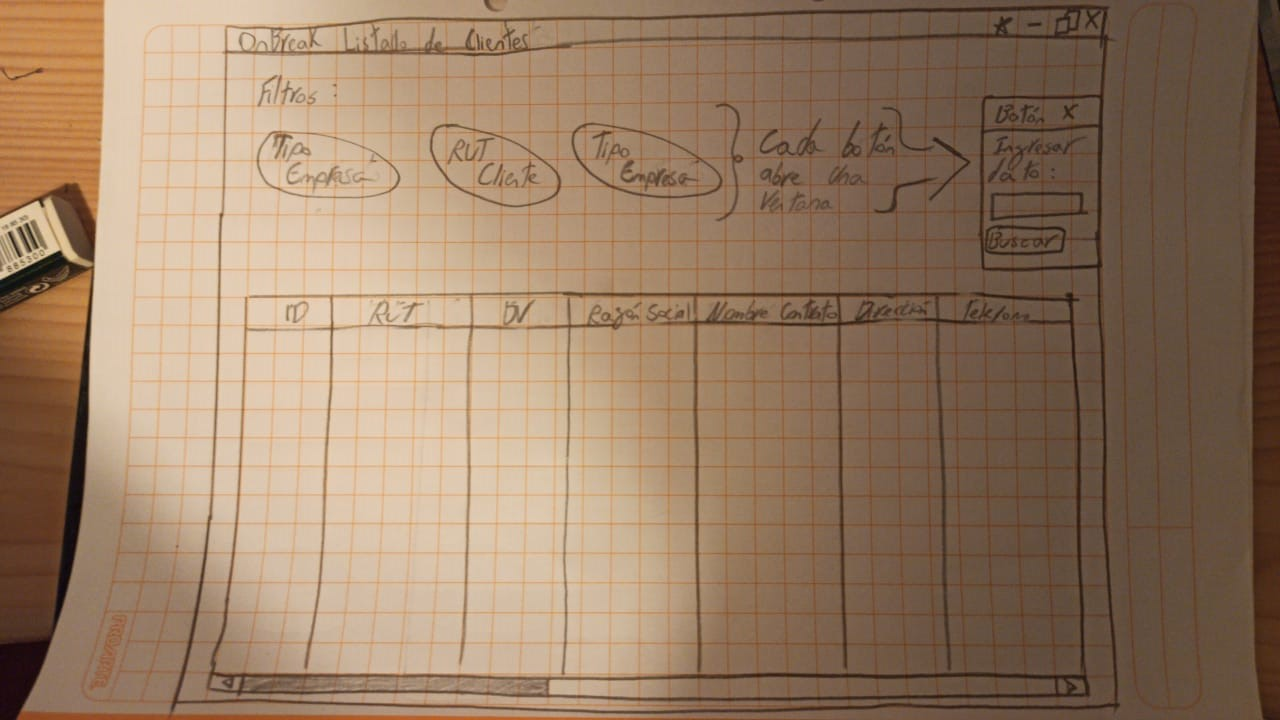 OnBreak Listado de Clientes * - X
Filtros :
Tipo
Empresa
RUT
Cliente
Tipo
Empresa
Cada botón
abre una
Ventana
Botón X
Ingresar
dato :
Buscar
ID RUT DV Razón Social Nombre Contrato Dirección Telefono
PROARTE
885300